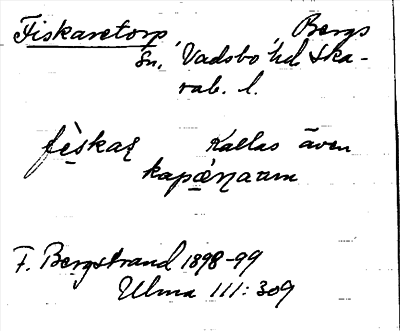 Fiskaretorp, Bergs
sn, Vadsbo hd Ska-
rab. l.
fèskaṛ Kallas även
kapǻṇarm
F. Bergstrand 1898-99
Ulma 111:309